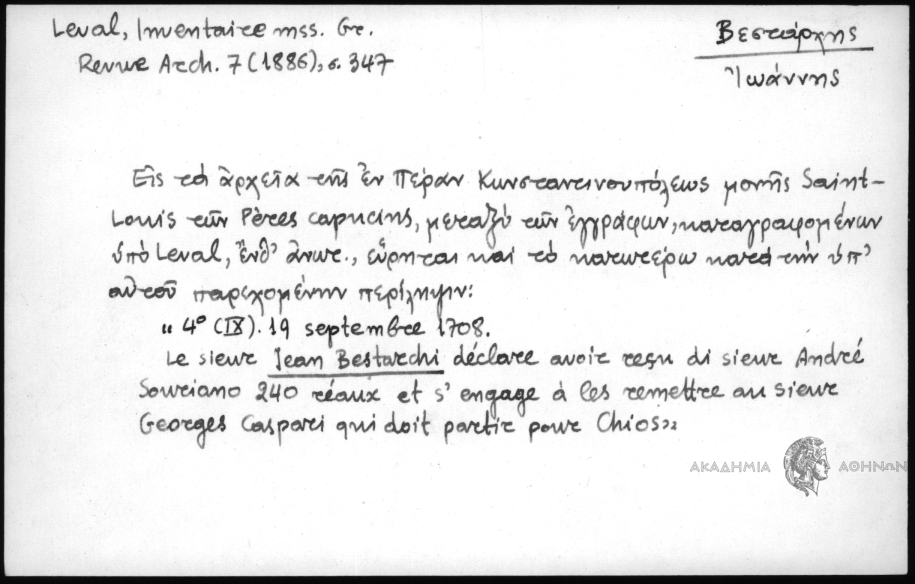 Leval, Inventaire mss. Gr.
Revue Arch. 7 (1886), σ. 347
Βεστάρχης
Ἰωάννης
Εἰς τὰ ἀρχεῖα τῆς ἐν Πέραν Κωνσταντινουπόλεως μονῆς Saint-
Louis τῶν Pères capucins, μεταξὺ τῶν ἐγγράφων, καταγραφομένων
ὑπὸ Leval, ἔνθ' ἀνωτ., εὕρηται καὶ τὸ κατωτέρω κατὰ τὴν ὑπ'
αὐτοῦ παρεχομένην περίληψιν:
" 4° (IX). 19 septembre 1708.
Le sieur Jean Bestarchi déclare avoir reçu di sieur André
Souriano 240 réaux et s'engage à les remettre au sieur
Georges Caspari qui doit partir pour Chios»
ΑΚΑΔΗΜΙΑ ΑΘΗΝΩΝ